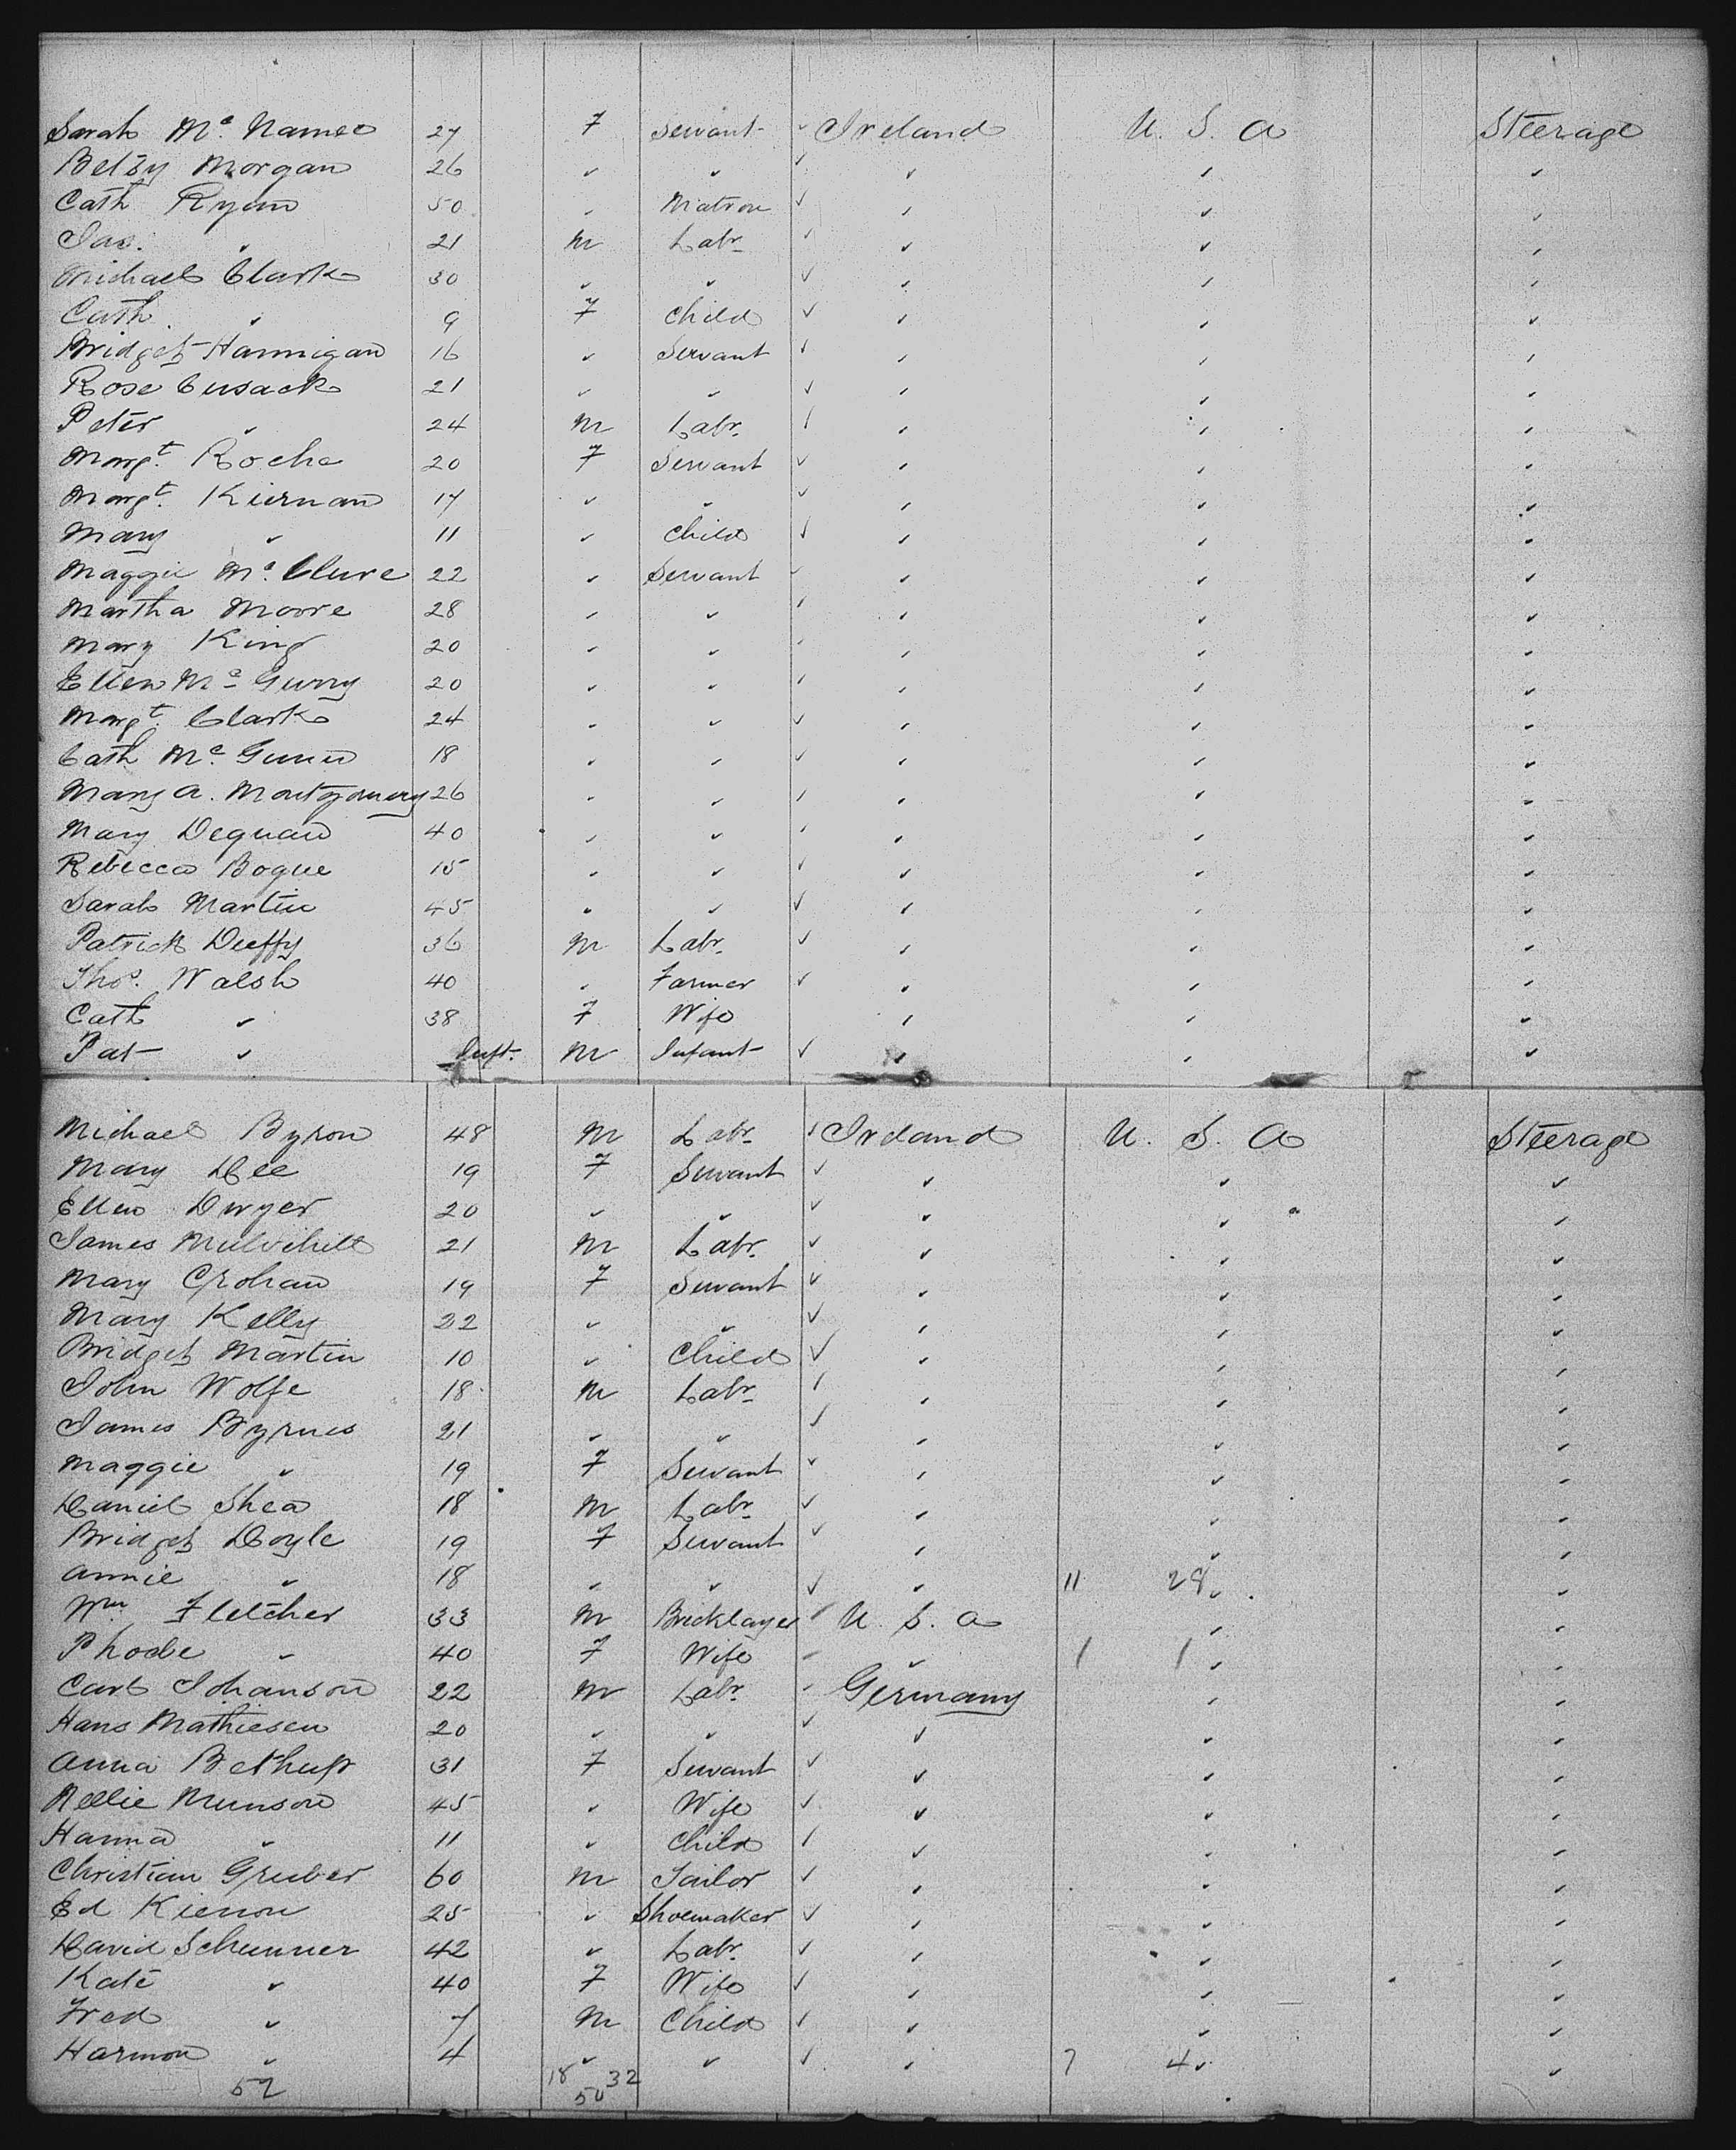 Sarah Mc Namee 27 F Servant ✓ Ireland U. S. A Steerage
Betsy Morgan 26 ✓ ✓ ✓ ✓ ✓ ✓
Cath Ryan 50 ✓ Matron ✓ ✓ ✓ ✓
Jas. ✓ 21 M Labr ✓ ✓ ✓ ✓
Michael Clark 30 ✓ ✓ ✓ ✓ ✓ ✓
Cath ✓ 9 F Child ✓ ✓ ✓ ✓
Bridget Hannigan 16 ✓ Servant ✓ ✓ ✓ ✓
Rose Cusack 21 ✓ ✓ ✓ ✓ ✓ ✓
Peter ✓ 24 M Labr. ✓ ✓ ✓ ✓
Margt. Roche 20 F Servant ✓ ✓ ✓ ✓
Margt. Kiernan 17 ✓ ✓ ✓ ✓ ✓ ✓
Mary ✓ 11 ✓ Child ✓ ✓ ✓ ✓
Maggie Mc Clure 22 ✓ Servant ✓ ✓ ✓ ✓
Martha Moore 28 ✓ ✓ ✓ ✓ ✓ ✓
Mary King 20 ✓ ✓ ✓ ✓ ✓ ✓
Ellen Mc 20 ✓ ✓ ✓ ✓ ✓ ✓
Margt. Clark 24 ✓ ✓ ✓ ✓ ✓ ✓
Cath Mc 18 ✓ ✓ ✓ ✓ ✓ ✓
Mary A. Montgomery 26 ✓ ✓ ✓ ✓ ✓ ✓
Mary Degnan 40 ✓ ✓ ✓ ✓ ✓ ✓
Rebecca Bogue 15 ✓ ✓ ✓ ✓ ✓ ✓
Sarah Martin 45 ✓ ✓ ✓ ✓ ✓ ✓
Patrick Duffy 36 M Labr. ✓ ✓ ✓ ✓
Thos. Walsh 40 ✓ Farmer ✓ ✓ ✓ ✓
Cath ✓ 38 F Wife ✓ ✓ ✓
Pat ✓ Inft. M Infant ✓ ✓ ✓ ✓
Michael Byron 48 M Labr ✓ Ireland U. S. A Steerage
Mary Dee 19 F Servant ✓ ✓ ✓ ✓
Ellen Dwyer 20 ✓ ✓ ✓ ✓ ✓ ✓
James Mulvihill 21 M Labr. ✓ ✓ ✓ ✓
Mary Crohan 19 F Servant ✓ ✓ ✓ ✓
Mary Kelly 22 ✓ ✓ ✓ ✓ ✓ ✓
Bridget Martin 10 ✓ Child ✓ ✓ ✓ ✓
John Wolfe 18 M Labr ✓ ✓ ✓ ✓
James Byrnes 21 ✓ ✓ ✓ ✓ ✓ ✓
Maggie ✓ 19 F Servant ✓ ✓ ✓ ✓
Daniel Shea 18 M Labr ✓ ✓ ✓ ✓
Bridget Doyle 19 F Servant ✓ ✓ ✓ ✓
Annie ✓ 18 ✓ ✓ ✓ ✓ 11 28 ✓ ✓
Wm Fletcher 33 M Bricklayer ✓ U. S. A ✓ ✓
Phoebe ✓ 40 F Wife ✓ ✓ 1 1 ✓ ✓
Carl Johanson 22 M Labr ✓ Germany ✓ ✓
Hans Mathiesen 20 ✓ ✓ ✓ ✓ ✓ ✓
Anna 31 F Servant ✓ ✓ ✓ ✓
Nellie Munson 45 ✓ Wife ✓ ✓ ✓ ✓
Hanna ✓ 11 ✓ Child ✓ ✓ ✓ ✓
Christian Gruber 60 M Tailor ✓ ✓ ✓ ✓
Ed Kienon 25 ✓ Shoemaker ✓ ✓ ✓ ✓
David Schunner 42 ✓ Labr. ✓ ✓ ✓ ✓
Kate ✓ 40 F Wife ✓ ✓ ✓ ✓
Fred ✓ 7 M Child ✓ ✓ ✓ ✓
Harmon ✓ 4 ✓ ✓ ✓ ✓ 7 4 ✓ ✓
52 18 32
50